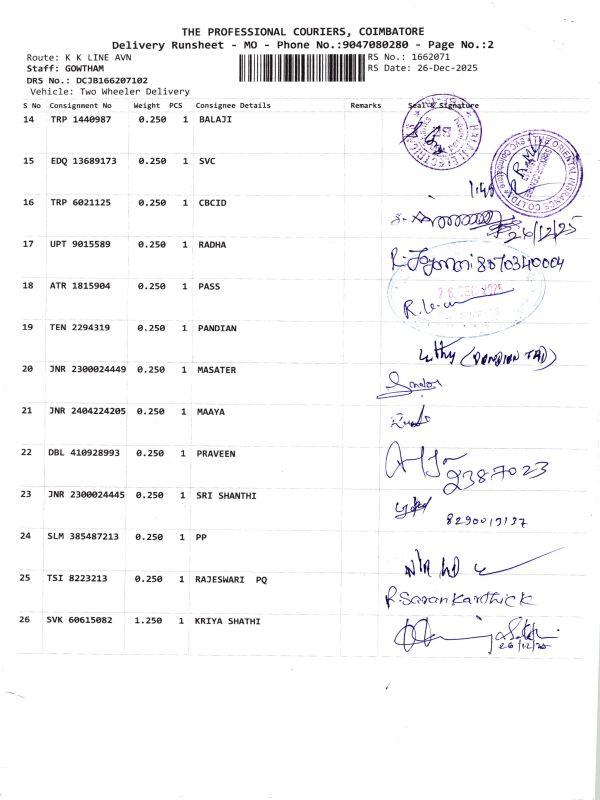 THE PROFESSIONAL COURIERS, COIMBATORE
Delivery Runsheet - MO - Phone No.:9047080280 - Page No.:2
Route: K K LINE AVN
RS No.: 1662071
Staff: GOWTHAM
RS Date: 26-Dec-2025
DRS No.: DCJB166207102
Vehicle: Two Wheeler Delivery
S No Consignment No Weight PCS Consignee Details Remarks Seal & Signature
14 TRP 1440987 0.250 1 BALAJI
15 EDQ 13689173 0.250 1 SVC
THE ORIENTAL INSURANCE CO LTD
16 TRP 6021125 0.250 1 CBCID
26/12/25
17 UPT 9015589 0.250 1 RADHA
18 ATR 1815904 0.250 1 PASS
26 DEC 2025
19 TEN 2294319 0.250 1 PANDIAN
20 JNR 2300024449 0.250 1 MASATER
21 JNR 2404224205 0.250 1 MAAYA
22 DBL 410928993 0.250 1 PRAVEEN
2387023
23 JNR 2300024445 0.250 1 SRI SHANTHI
24 SLM 385487213 0.250 1 PP
25 TSI 8223213 0.250 1 RAJESWARI PQ
R. Saran Karthick
26 SVK 60615082 1.250 1 KRIYA SHATHI
26/12/25